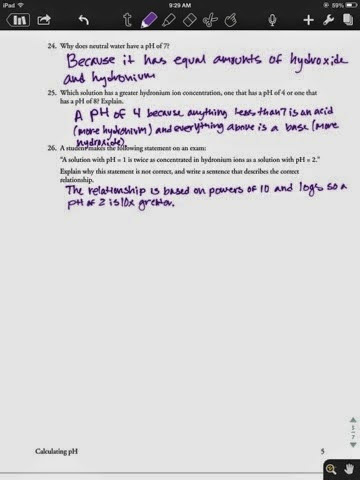 iPad
9:29 AM
59%
24. Why does neutral water have a pH of 7?
Because it has equal amounts of hydroxide
and hydronium
25. Which solution has a greater hydronium ion concentration, one that has a pH of 4 or one that
has a pH of 8? Explain.
A pH of 4 because anything less than 7 is an acid
(more hydronium) and everything above is a base (more
hydroxide)
26. A student makes the following statement on an exam:
"A solution with pH = 1 is twice as concentrated in hydronium ions as a solution with pH = 2."
Explain why this statement is not correct, and write a sentence that describes the correct
relationship.
The relationship is based on powers of 10 and logs so a
pH of 2 is 10x greater.
Calculating pH
5
1
7